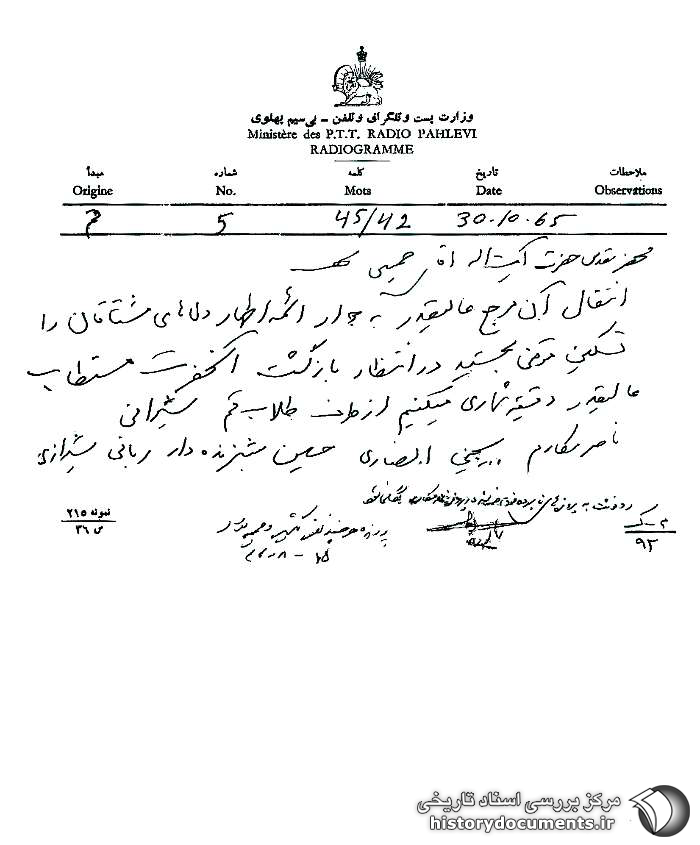 وزارت پست و تلگراف و تلفن - بی‌سیم پهلوی
Ministère des P.T.T. RADIO PAHLEVI
RADIOGRAMME
مبدأ شماره کلمه تاریخ ملاحظات
Origine No. Mots Date Observations
قم 5 45/42 30-10-65
محضر مقدس حضرت آیت اله آقای خمینی
انتقال آن مرجع عالیقدر به جوار ائمه اطهار دلهای مشتاقان را
تسکین موقتی بخشید در انتظار بازگشت آنحضرت مستطاب
عالیقدر دقیقه شماری میکنیم از طرف طلاب قم
ناصر مکارم یحیی انصاری حسین شب زنده دار ربانی شیرازی
رونوشت به
پرونده
نمونه ۲۱۵
ص ۳۶
۹۲
مرکز بررسی اسناد تاریخی
historydocuments.ir